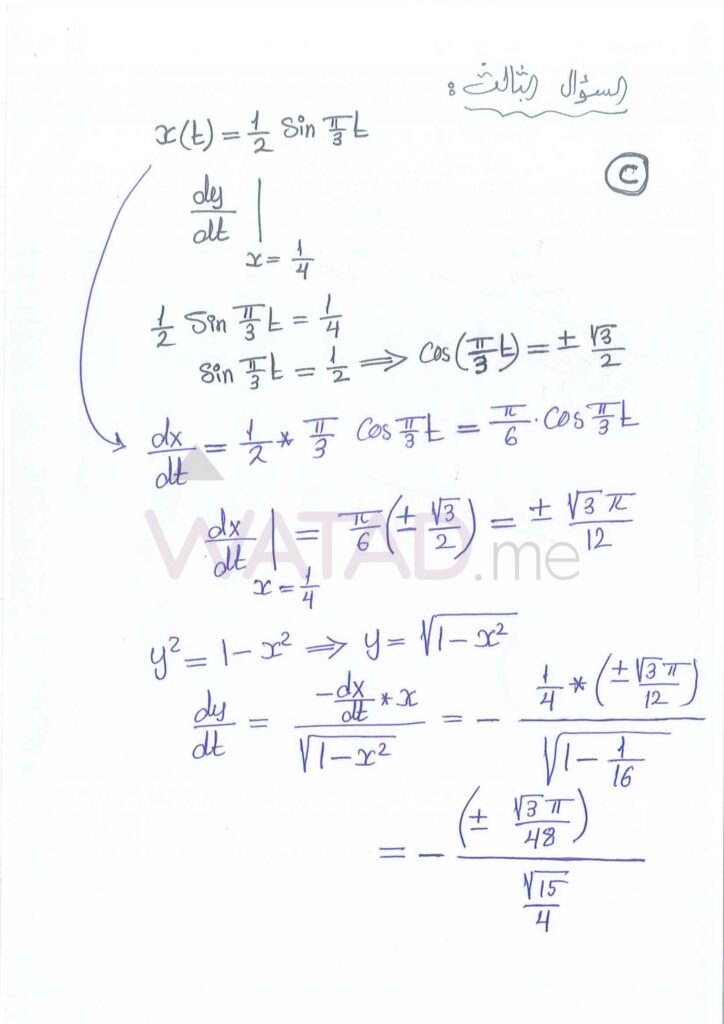 السؤال الثالث :
C
x(t) = 1/2 Sin π/3 t
dy/dt | x = 1/4
1/2 Sin π/3 t = 1/4
Sin π/3 t = 1/2 ⟹ Cos(π/3 t) = ± √3/2
dx/dt = 1/2 * π/3 Cos π/3 t = π/6 · Cos π/3 t
dx/dt | x = 1/4 = π/6 (± √3/2) = ± √3 π/12
WATAD.me
y² = 1 - x² ⟹ y = √(1 - x²)
dy/dt = (-dx/dt * x)/√(1 - x²) = - (1/4 * (± √3 π/12))/√(1 - 1/16)
= - (± √3 π/48)/(√15/4)